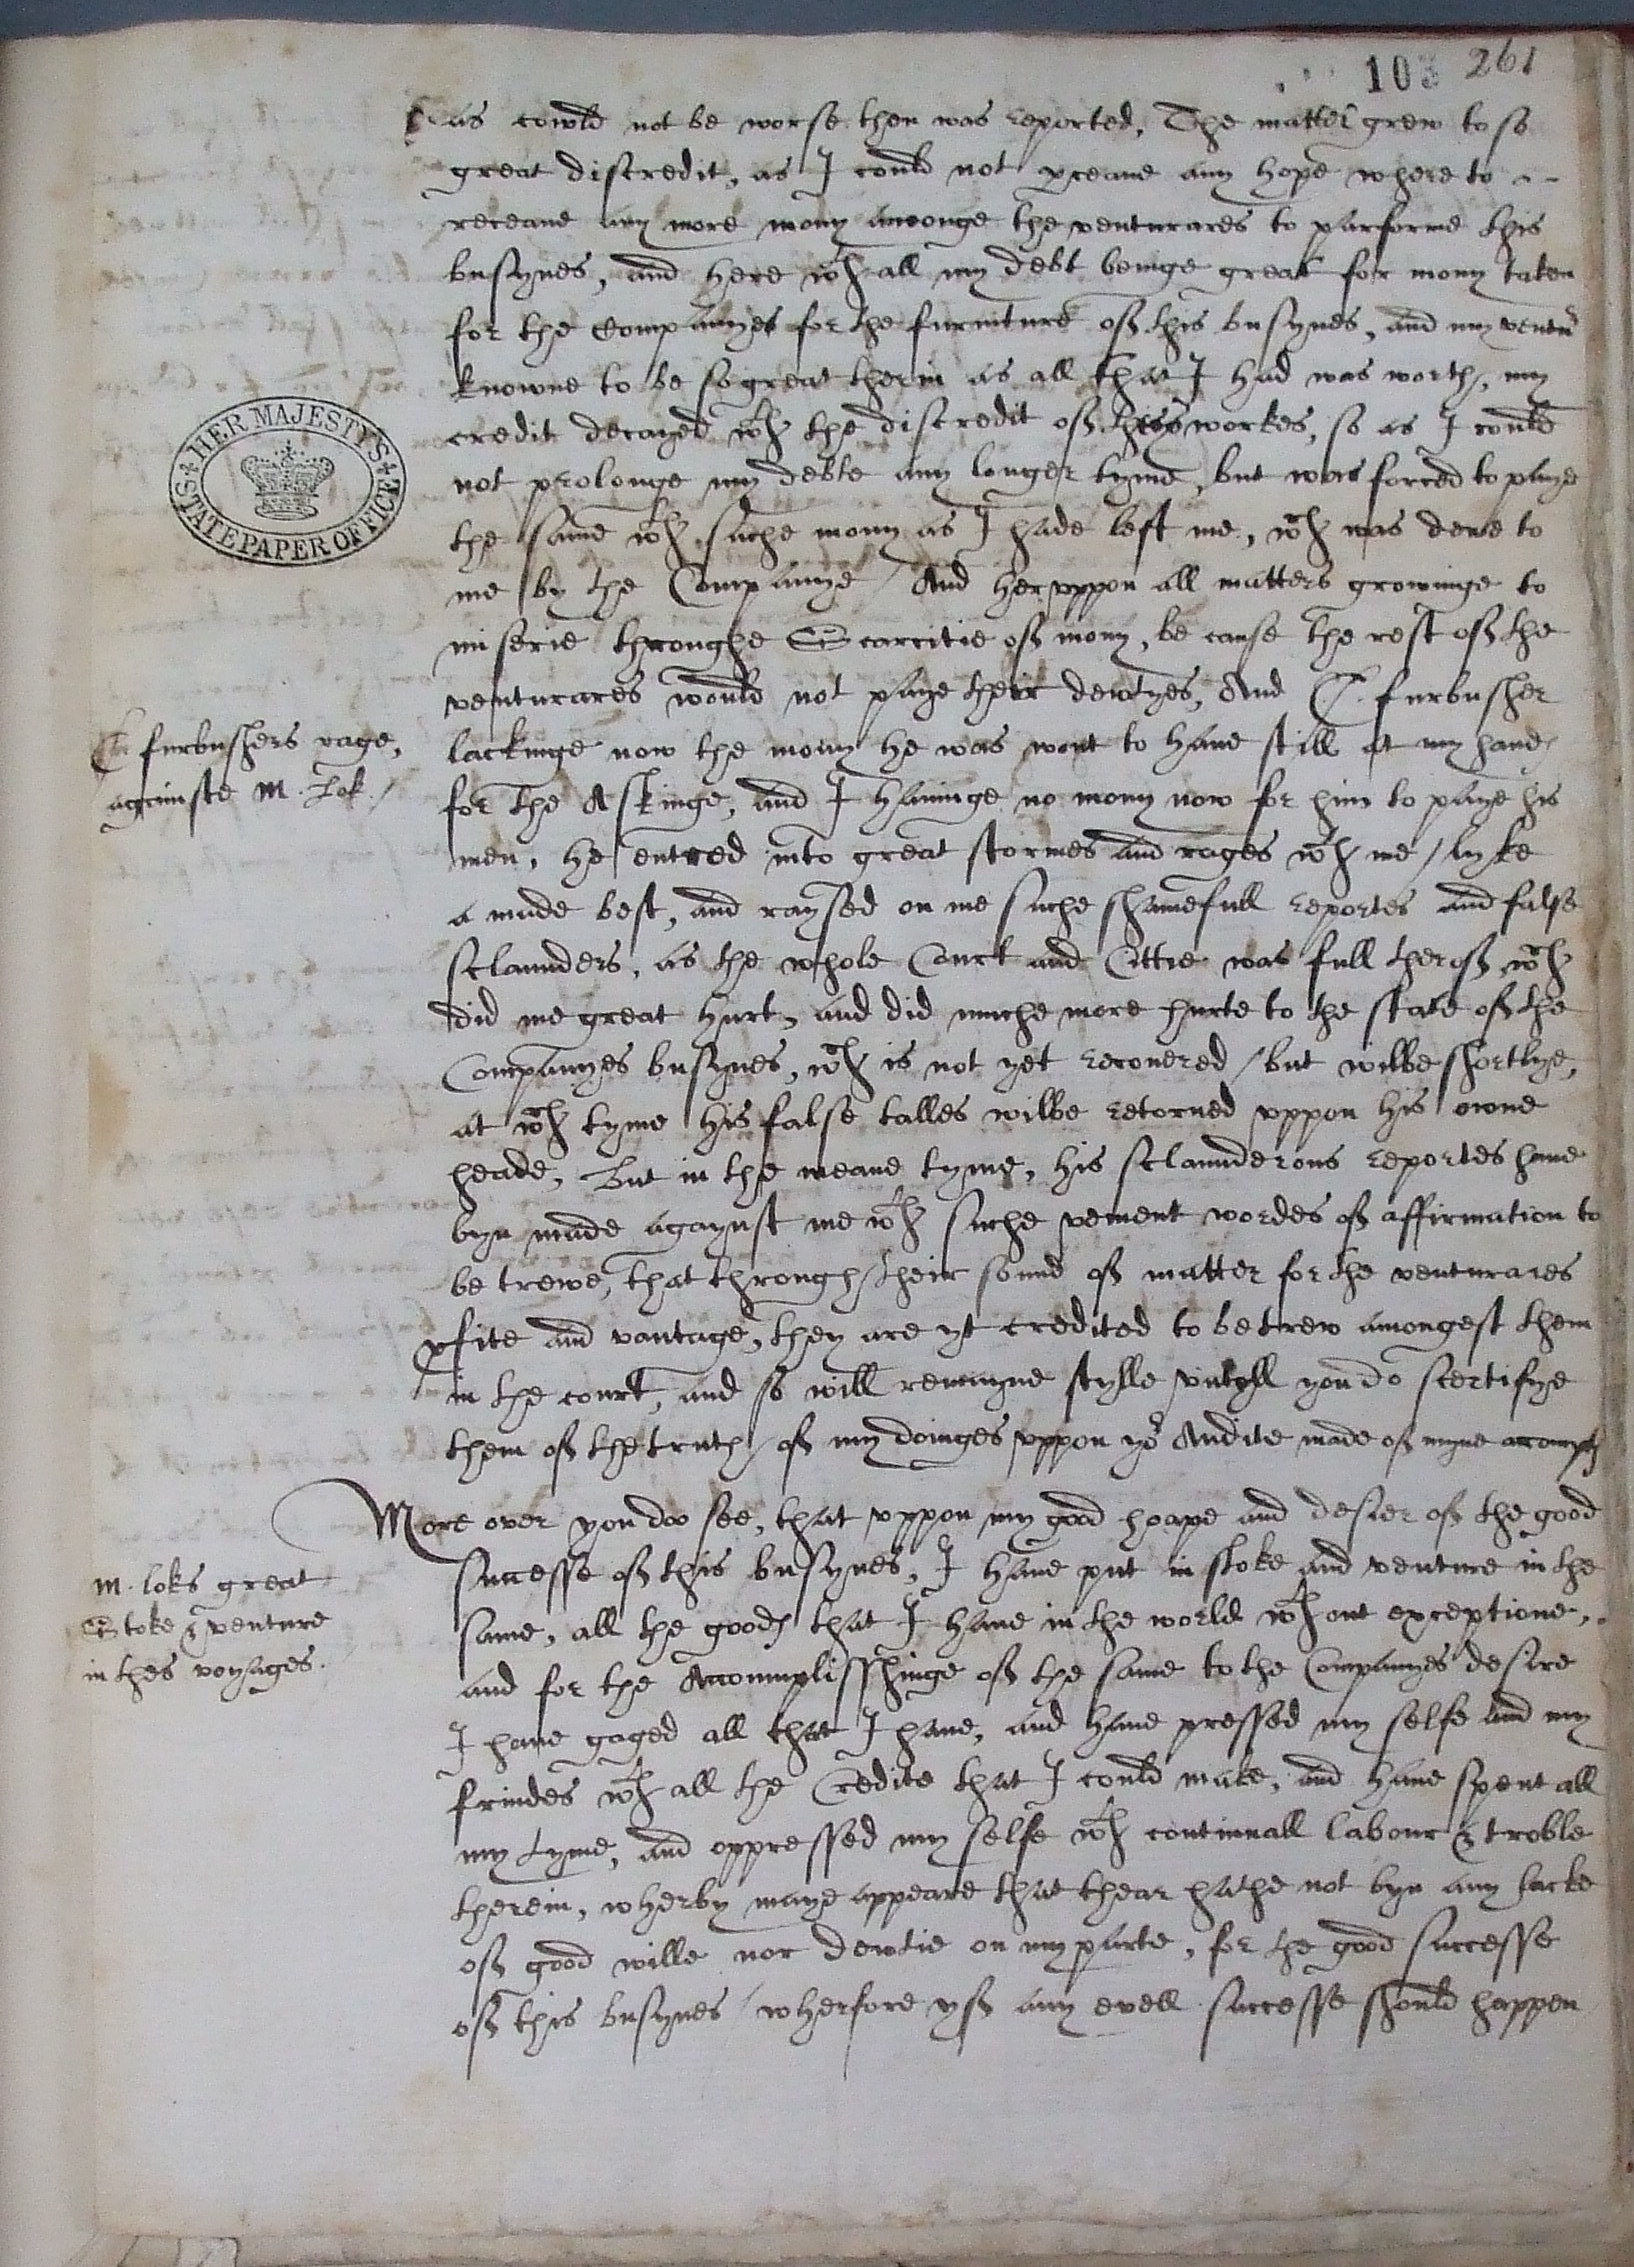 103 261
as cowld not be worse then was reported, The matter grew to so
great discredit, as I could not p̱ceaue any hope where to
receaue any more mony amonge the venturares to parforme this
busynes, and here wth all my debt beinge great for mony taken
for the Companyes for the furniture off this busynes, and my ventur
knowne to be so great therin as all that I had was worth, my
credit decayed wth the discredit off thes workes, so as I could
not prolonge my debte any longer tyme, but was forced to paye
the same wth suche mony as I hade left me, wch was dewe to
me by the Companye / And hervppon all matters growinge to
miserie throughe Scarcitie off mony, be cause the rest off the
venturares would not paye their dewtyes, And C. furbusher
lackinge now the mony he was wont to haue still at my hand
for the Askinge, and I hauinge no mony now for him to paye his
men, he entred into great stormes and rages wth me / lyke
a made best, and raysed on me suche shamefull reportes and false
sclaunders, as the whole Court and Cittie was full theroff, wch
did me great hurt, and did muche more hurte to the state off the
Companyes busynes, wch is not yet recouered / but wilbe shortlye,
at wch tyme his false talles wilbe retorned vppon his owne
heade, But in the meane tyme, his sclaunderous reportes haue
byn made agaynst me wth suche vement wordes off affirmation to
be trewe, that through their sound off matter for the venturares
p̱fite and vantage, they are yt credited to be trew amongest them
in the court, and so will remayne stylle vntyll you do scertifye
them off the truth / off my doinges vppon yor Audite made off myne accompts
C. furbushers rage,
againste M. Lok /
More over you doo see, that vppon my good hoape and desier off the good
successe off this busynes, I haue put in stoke and venture in the
same, all the goods that I haue in the world wth out exceptione,
and for the Accomplisshinge off the same to the Companyes desire
I haue gaged all that I haue, and haue pressed my selfe and my
frindes wth all the Credite that I could make, and haue spent all
my tyme, and oppressed my selfe wth continuall labour & troble
therein, wherby maye appeare that thear hathe not byn any lacke
off good wille nor dewtie on my parte, for the good successe
off this busynes / wherfore yff any evell successe should happen
M. loks great
Stoke & venture
in thes voyages.
HER MAJESTY'S
STATE PAPER OFFICE